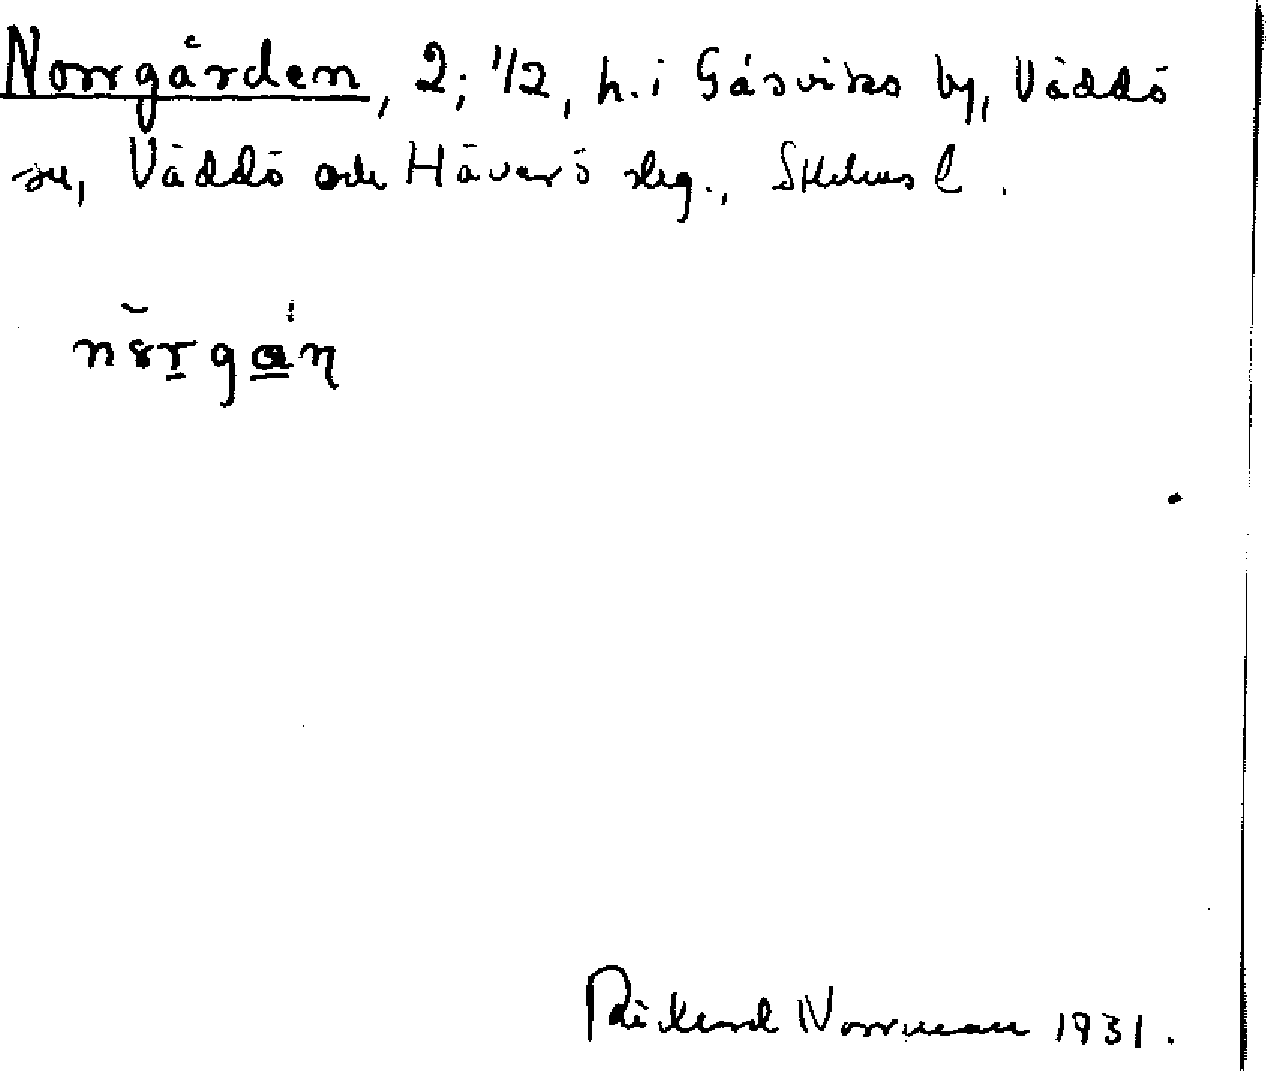 Norrgården, 2; 1/2, h. i Gåsviks by, Väddö
sn, Väddö och Häverö slg., Sthlms l.
Rickard Norrman 1931.